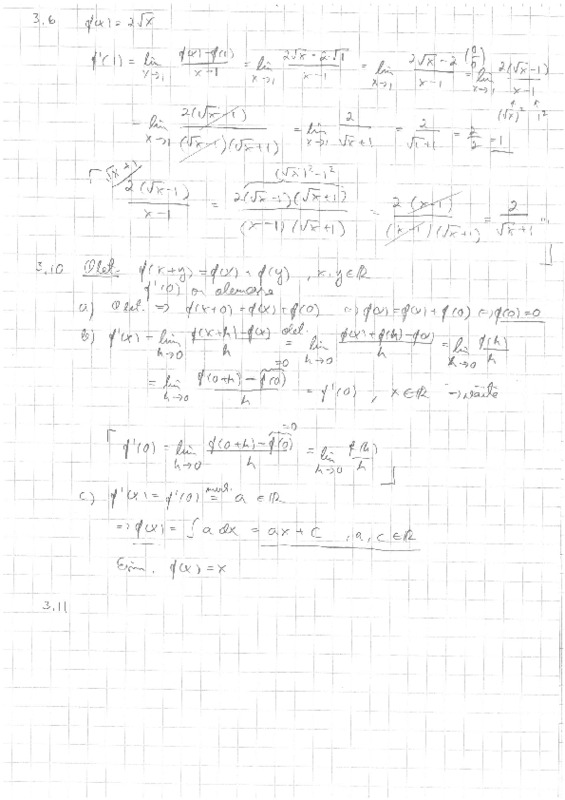 3.6 f(x) = 2√x
f'(1) = lim x→1 (f(x) - f(1))/(x-1) = lim x→1 (2√x - 2·√1)/(x-1) = lim x→1 (2√x - 2)/(x-1) (0/0) = lim x→1 2(√x-1)/(x-1)
(√x)² 1²
= lim x→1 2(√x-1)/((√x-1)(√x+1)) = lim x→1 2/(√x+1) = 2/(√1+1) = 2/2 = 1
(√x)² - 1²
2(√x-1)/(x-1) = 2(√x-1)(√x+1)/((x-1)(√x+1)) = 2(x-1)/((x-1)(√x+1)) = 2/(√x+1)
3.10 Olet. f(x+y) = f(x) + f(y), x, y ∈ ℝ
f'(0) on olemassa
a) Olet. ⇒ f(x+0) = f(x) + f(0) ⇔ f(x) = f(x) + f(0) ⇔ f(0) = 0
b) f'(x) = lim h→0 (f(x+h) - f(x))/h olet. = lim h→0 (f(x) + f(h) - f(x))/h = lim h→0 f(h)/h
=0
= lim h→0 (f(0+h) - f(0))/h = f'(0), x ∈ ℝ ⇒ väite
=0
f'(0) = lim h→0 (f(0+h) - f(0))/h = lim h→0 f(h)/h
c) f'(x) = f'(0) = a ∈ ℝ
⇒ f(x) = ∫ a dx = ax + C, a, c ∈ ℝ
Esim. f(x) = x
3.11